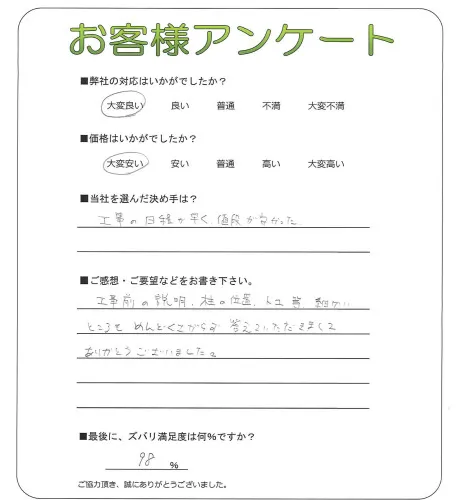 お客様アンケート
■弊社の対応はいかがでしたか？
大変良い 良い 普通 不満 大変不満
■価格はいかがでしたか？
大変安い 安い 普通 高い 大変高い
■当社を選んだ決め手は？
工事の日程が早く、値段が安かった
■ご感想・ご要望などをお書き下さい。
工事前の説明、柱の位置、等 細かい
ところも めんどくさがらず 答えていただきまして
ありがとうございました。
■最後に、ズバリ満足度は何%ですか？
98 %
ご協力頂き、誠にありがとうございました。